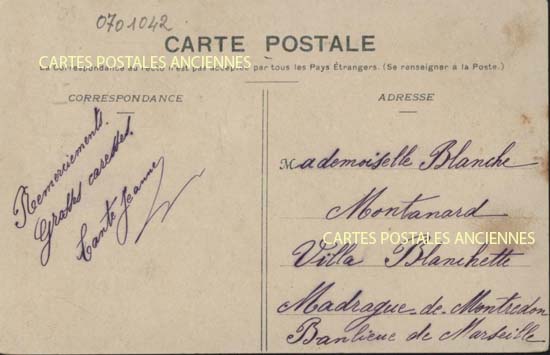 0701042
CARTE POSTALE
CARTES POSTALES ANCIENNES
La Correspondance au recto n'est pas acceptée par tous les Pays Étrangers. (Se renseigner à la Poste.)
CORRESPONDANCE
Remerciements.
Grosses caresses.
Tante Jeanne
ADRESSE
Mademoiselle Blanche
Montanard
CARTES POSTALES ANCIENNES
Villa Blanchette
Madrague-de-Montredon
Banlieue de Marseille